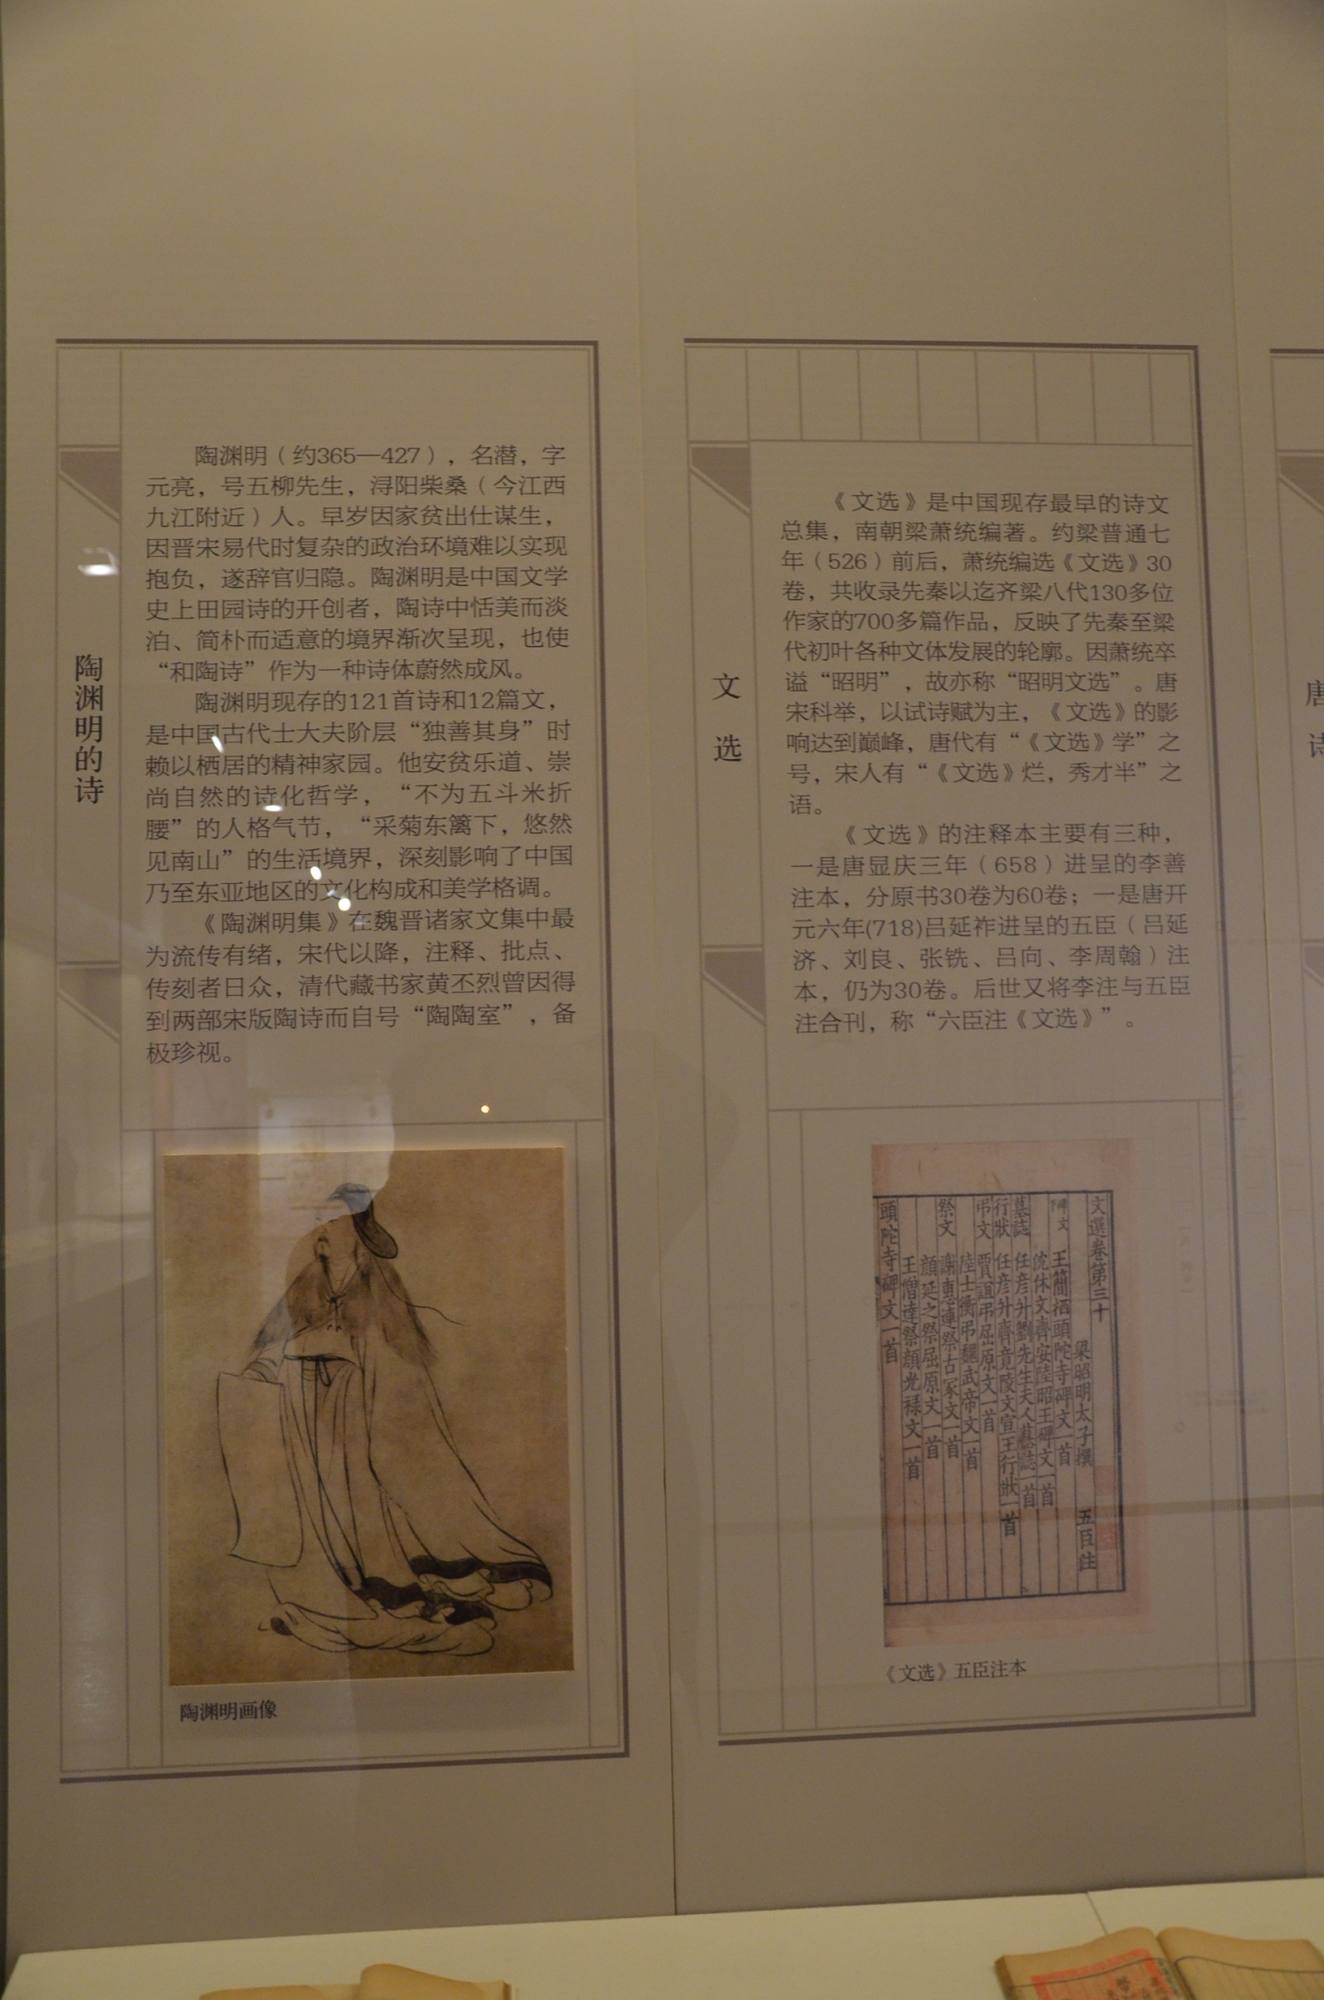 陶渊明的诗
陶渊明（约365—427），名潜，字
元亮，号五柳先生，浔阳柴桑（今江西
九江附近）人。早岁因家贫出仕谋生，
因晋宋易代时复杂的政治环境难以实现
抱负，遂辞官归隐。陶渊明是中国文学
史上田园诗的开创者，陶诗中恬美而淡
泊、简朴而适意的境界渐次呈现，也使
“和陶诗”作为一种诗体蔚然成风。
陶渊明现存的121首诗和12篇文，
是中国古代士大夫阶层“独善其身”时
赖以栖居的精神家园。他安贫乐道、崇
尚自然的诗化哲学，“不为五斗米折
腰”的人格气节，“采菊东篱下，悠然
见南山”的生活境界，深刻影响了中国
乃至东亚地区的文化构成和美学格调。
《陶渊明集》在魏晋诸家文集中最
为流传有绪，宋代以降，注释、批点、
传刻者日众，清代藏书家黄丕烈曾因得
到两部宋版陶诗而自号“陶陶室”，备
极珍视。
陶渊明画像
文选
《文选》是中国现存最早的诗文
总集，南朝梁萧统编著。约梁普通七
年（526）前后，萧统编选《文选》30
卷，共收录先秦以迄齐梁八代130多位
作家的700多篇作品，反映了先秦至梁
代初叶各种文体发展的轮廓。因萧统卒
谥“昭明”，故亦称“昭明文选”。唐
宋科举，以试诗赋为主，《文选》的影
响达到巅峰，唐代有“《文选》学”之
号，宋人有“《文选》烂，秀才半”之
语。
《文选》的注释本主要有三种，
一是唐显庆三年（658）进呈的李善
注本，分原书30卷为60卷；一是唐开
元六年(718)吕延祚进呈的五臣（吕延
济、刘良、张铣、吕向、李周翰）注
本，仍为30卷。后世又将李注与五臣
注合刊，称“六臣注《文选》”。
文選卷第三十
梁昭明太子撰 五臣注
碑文 王簡栖頭陀寺碑文一首
沈休文齊安陸昭王碑文一首
墓誌 任彦升劉先生夫人墓誌一首
行狀 任彦升齊竟陵文宣王行狀一首
弔文 賈誼弔屈原文一首
陸士衡弔魏武帝文一首
祭文 謝惠連祭古冢文一首
顔延之祭屈原文一首
王僧達祭顔光禄文一首
頭陀寺碑文一首
《文选》五臣注本
唐
诗